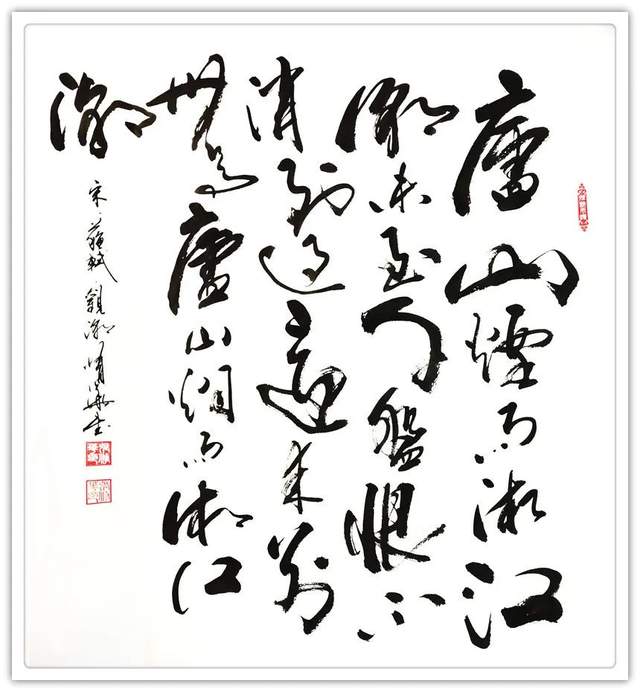 廬山煙雨浙江
潮未至千盤恨不
消到過還來别
無事廬山烟雨浙江
潮
宋蘇軾觀潮書